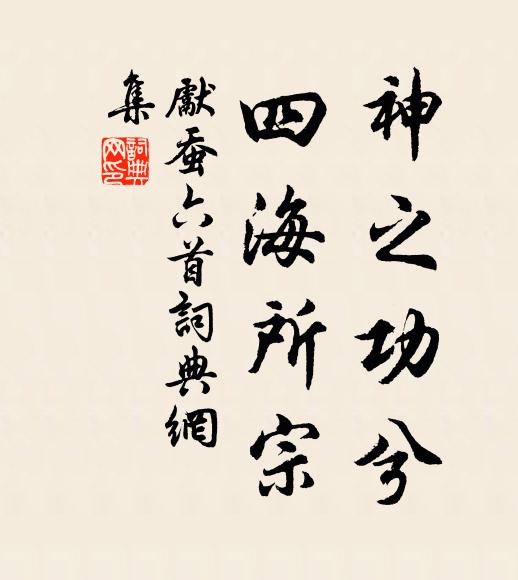 神之功兮
四海所宗
獻蚕六首詞典網
集
詞典網印